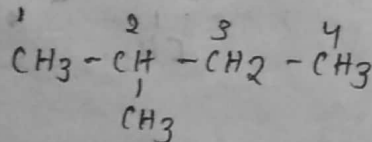 1 2 3 4
CH3 - CH - CH2 - CH3
CH3